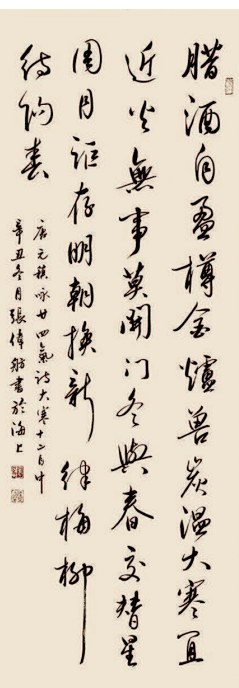 腊酒自盈樽金爐兽炭温大寒宜
近火無事莫開门冬與春交替星
周月詎存明朝换新律梅柳
待陽春
唐元稹咏廿四氣诗大寒十二月中
辛丑冬月張偉書於海上